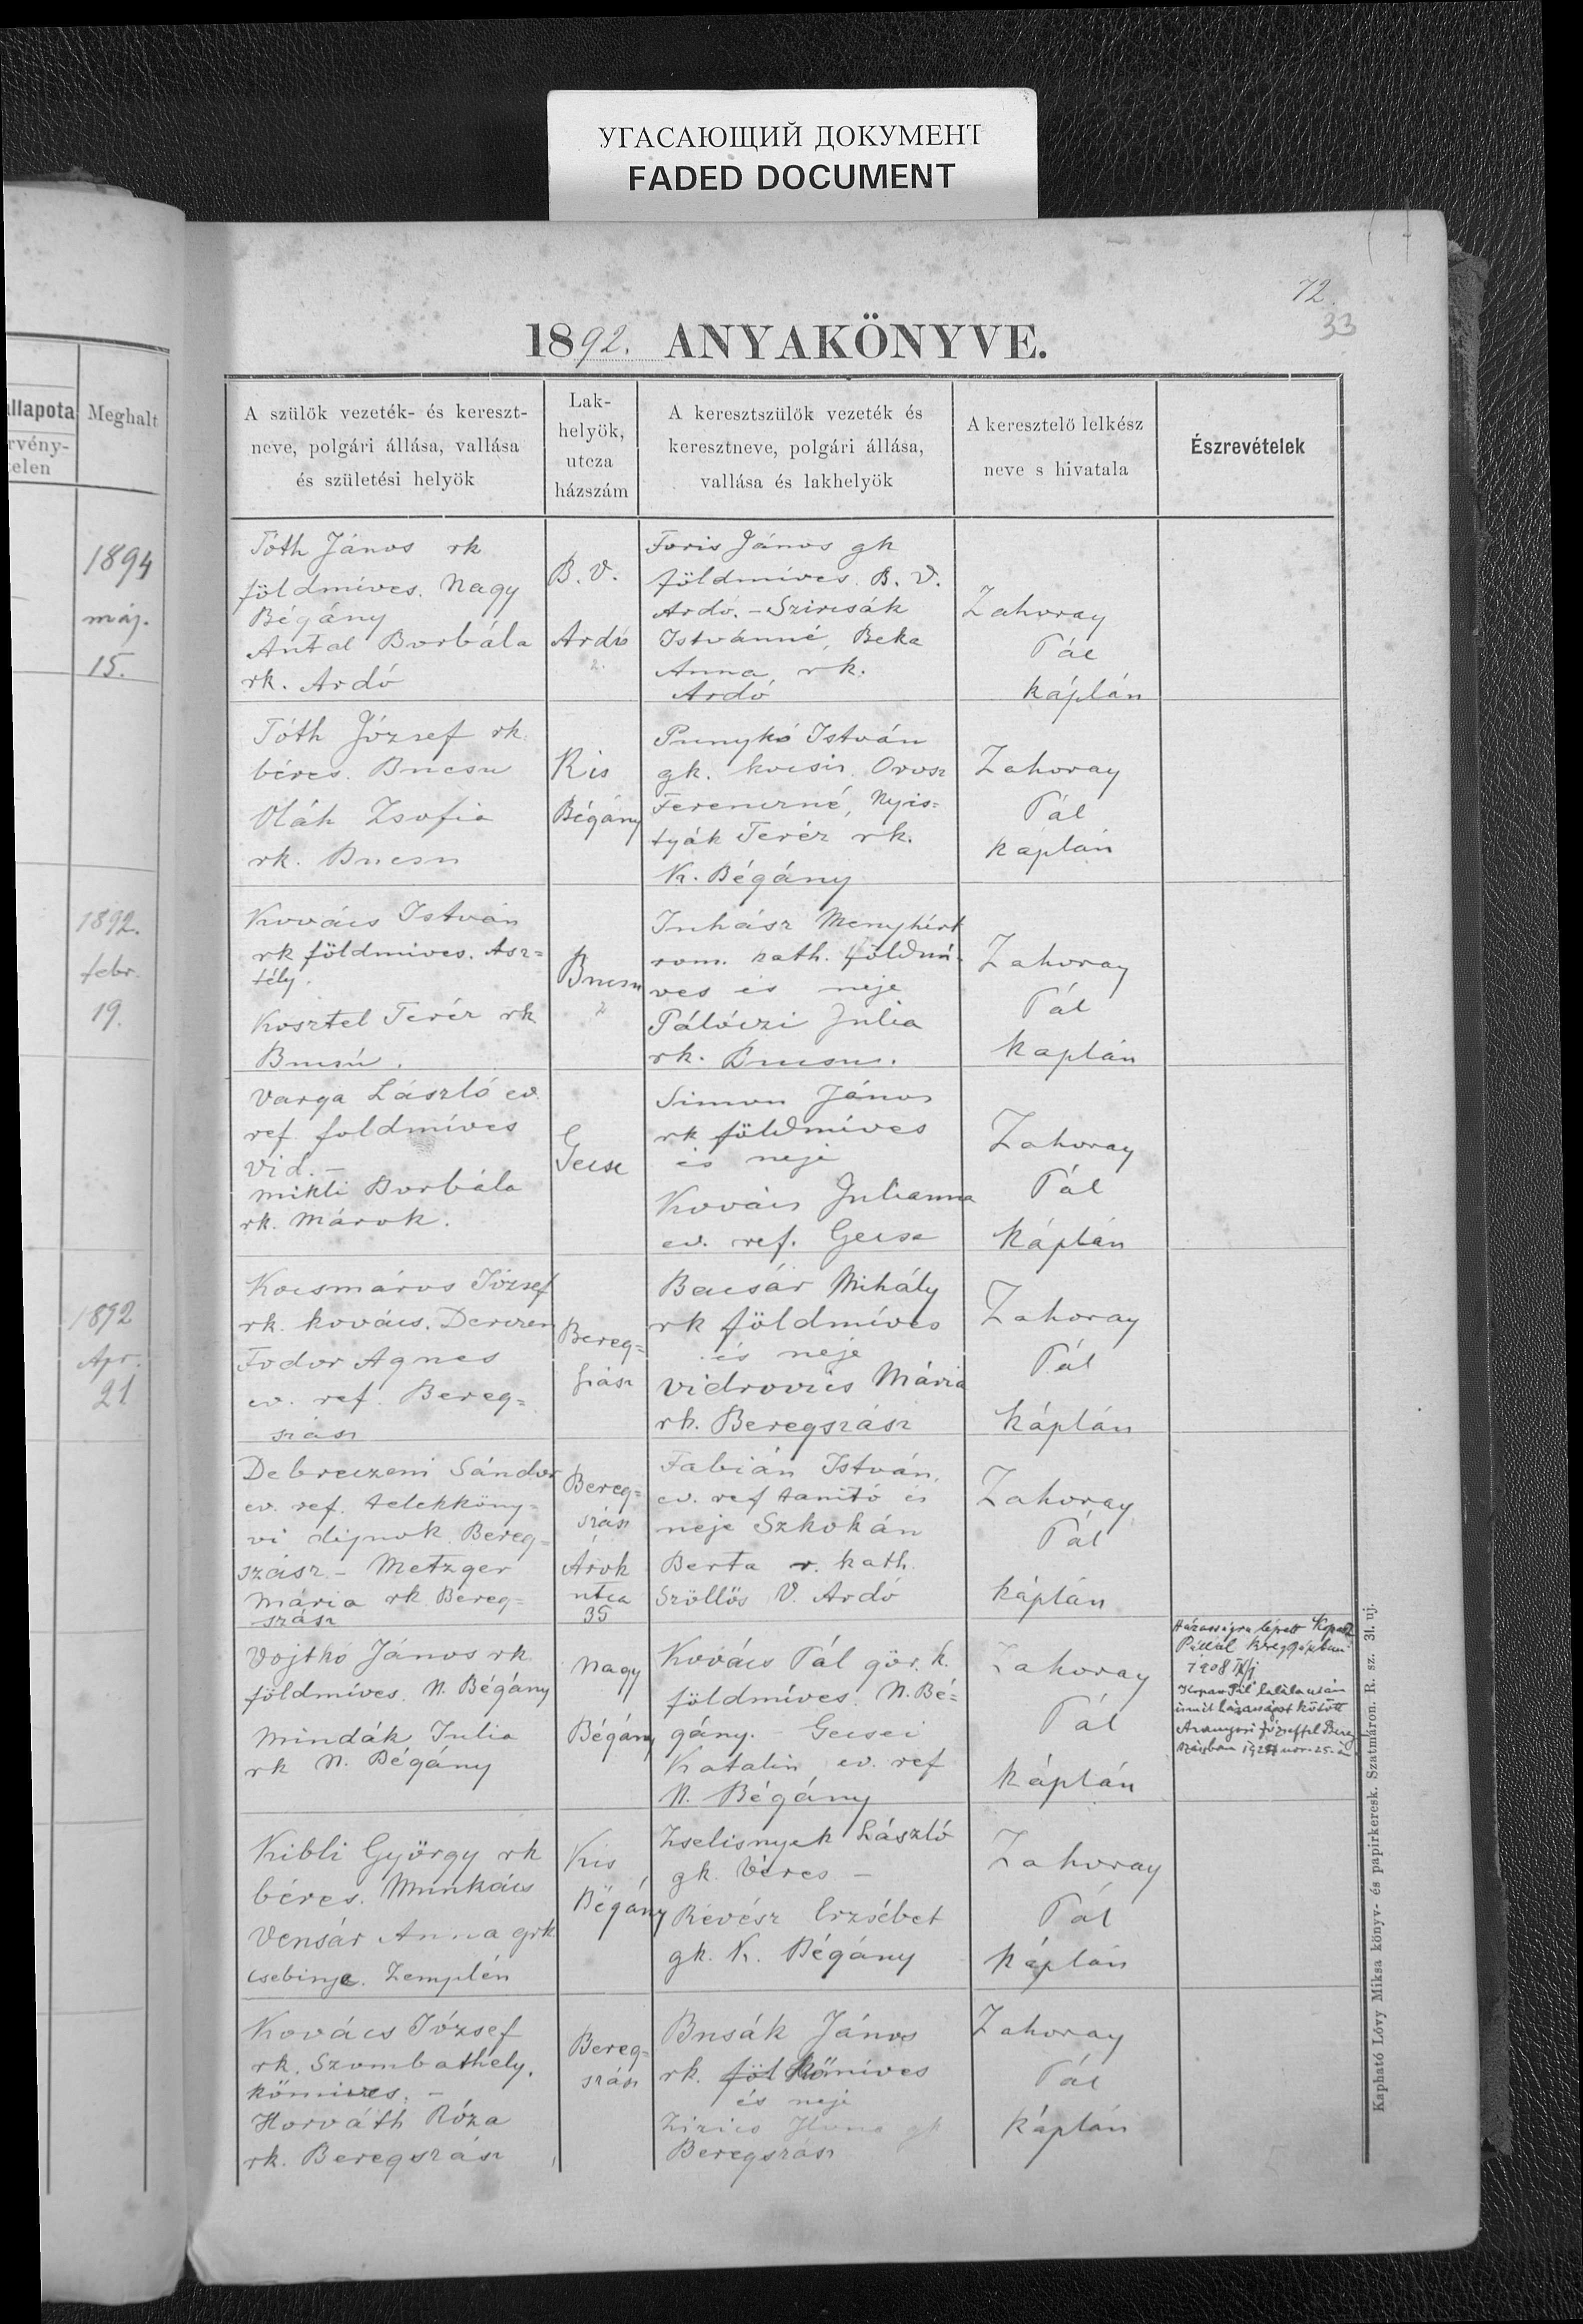 УГАСАЮЩИЙ ДОКУМЕНТ
FADED DOCUMENT
72.
33
1892. ANYAKÖNYVE.
állapota
rvény-
telen
Meghalt
1894
máj.
15.
1892.
febr.
19.
1892
Apr.
21
A szülök vezeték- és kereszt-
neve, polgári állása, vallása
és születési helyök
Lak-
helyök,
utcza
házszám
A keresztszülök vezeték és
keresztneve, polgári állása,
vallása és lakhelyök
A keresztelő lelkész
neve s hivatala
Észrevételek
Tóth János rk
földmíves. Nagy
Bégány
Antal Borbála
rk. Ardó
B. V.
Ardó
2.
Foris János gk
földmíves. B. V.
Ardó. - Szircsák
Istvánné, Beka
Anna rk.
Ardó
Zahoray
Pál
káplán
Tóth József rk.
béres. Bucsu
Oláh Zsofia
rk. Bucsu
Kis
Bégány
Punykó István
gk. kocsis. Orosz
Ferenczné, Nyis=
tyák Teréz rk.
K. Bégány
Zahoray
Pál
káplán
Kovács István
rk földmíves. Asz=
tély.
Kosztel Teréz rk
Bucsú.
Bucsu
2
Juhász Menyhért
rom. kath. földmí-
ves és neje
Pálóczi Julia
rk. Bucsu.
Zahoray
Pál
kaplán
Varga László ev.
ref. foldmíves
Vid. -
Mikli Borbála
rk. Márok.
Gecse
Simon János
rk földmíves
és neje
Kovács Julianna
ev. ref. Gecse
Zahoray
Pál
káplán
Kocsmáros József
rk. kovács. Derczen
Fodor Agnes
ev. ref. Bereg=
szász
Bereg=
szász
Bacsár Mihály
rk földmíves
és neje
Vidrovics Mária
rk. Beregszász
Zahoray
Pál
káplán
Debreczeni Sándor
ev. ref. telekköny=
vi díjnok Bereg=
szász. - Metzger
Mária rk. Bereg=
szász
Bereg=
szász
Árok
utca
35
Fabián István,
ev. ref tanító és
neje Szkokán
Berta r. kath.
Szöllős V. Ardó
Zahoray
Pál
káplán
Vojtkó János rk.
földmíves. N. Bégány
Mindák Julia
rk N. Bégány
Nagy
Bégány
Kovács Pál gör. k.
földmíves. N. Bé=
gány. - Gecsei
Katalin ev. ref
N. Bégány
Zahoray
Pál
káplán
Házasságra lépett
Pállal
1908
Pál halála után
ismét házasságot kötött
Aranyosi Józseffel Bereg
szászban nov. 25-én
Kibli György rk
béres. Munkács
Vensár Anna grk
Csebinye. Zemplén
Kis
Bégány
Zselisnyek László
gk. béres -
Révész Erzsébet
gk. K. Bégány
Zahoray
Pál
káplán
Kovács József
rk. Szombathely.
kömíves. -
Horváth Róza
rk. Beregszász
Bereg=
szász
Busák János
rk. föl Kőmíves
és neje
Zirics Ilona gk
Beregszász
Zahoray
Pál
káplán
Kapható Lővy Miksa könyv- és papirkeresk. Szatmáron. R. sz. 31. uj.